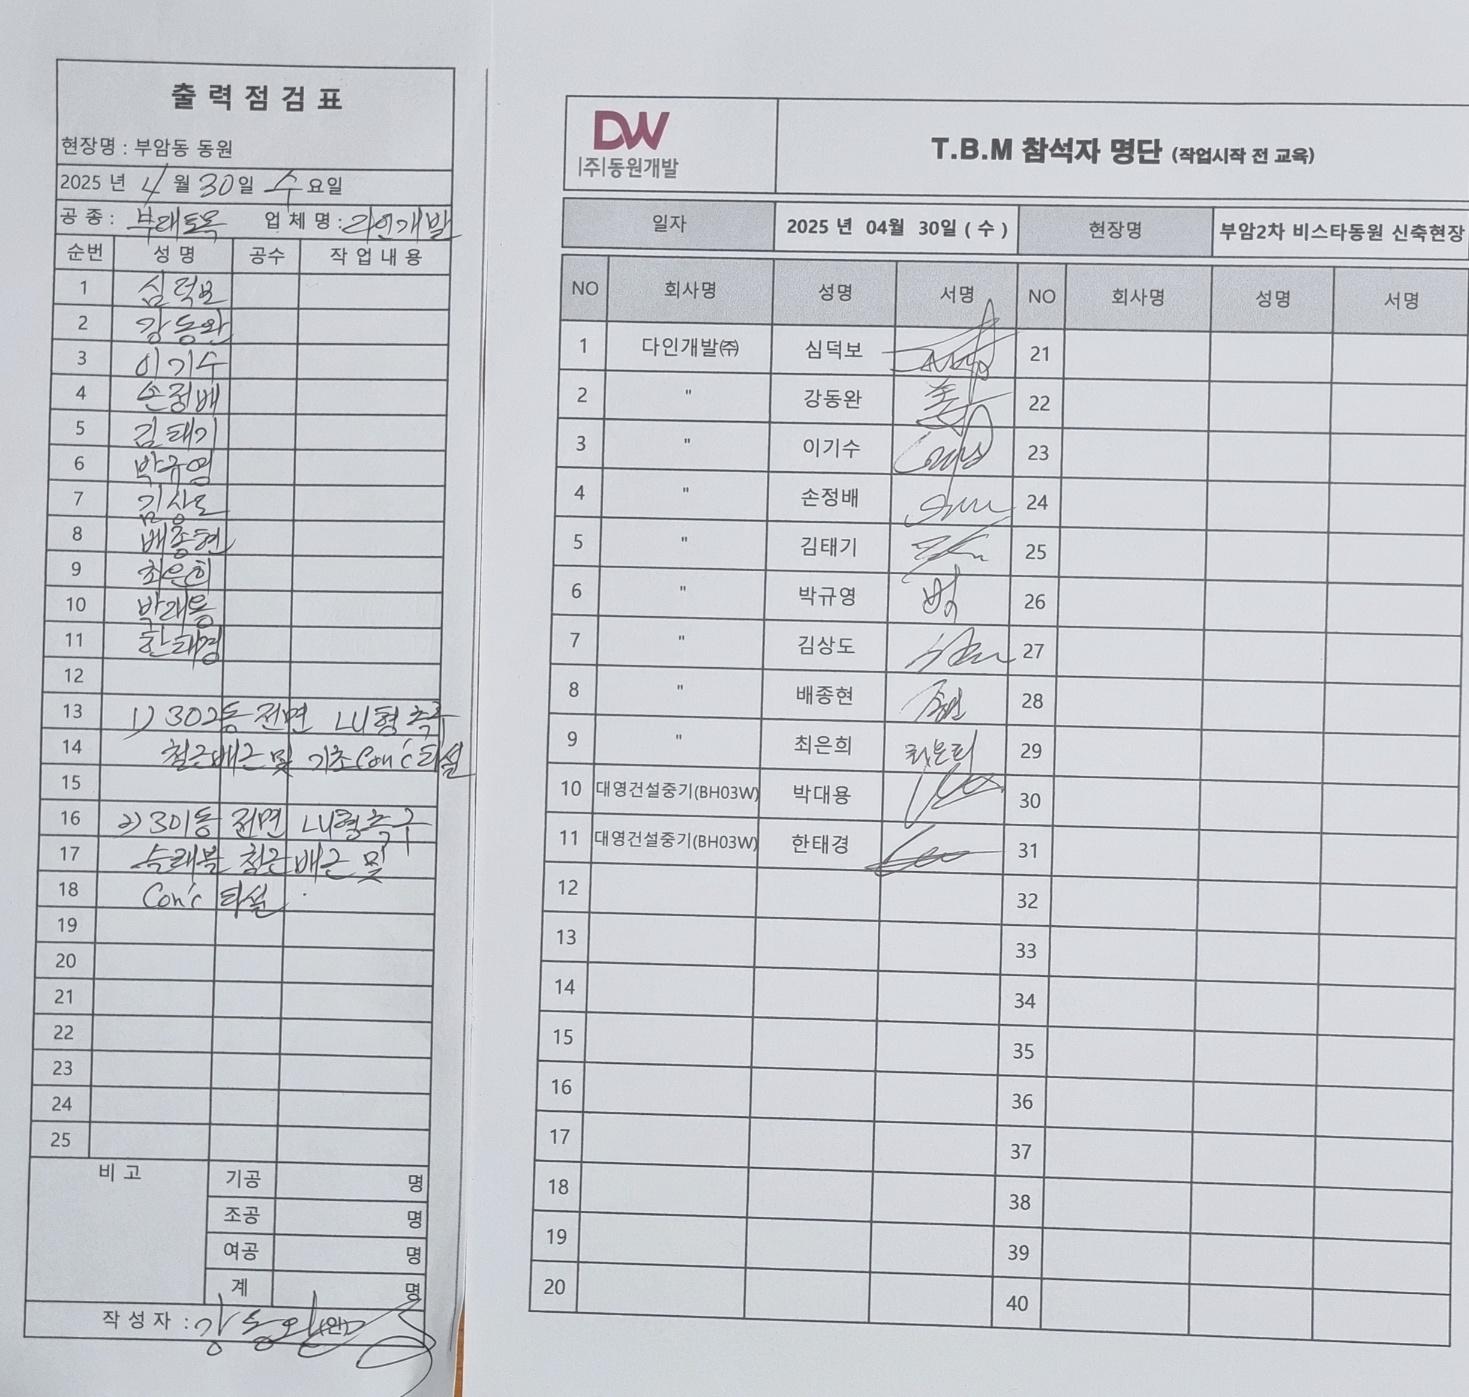 출력점검표
현장명 : 부암동 동원
2025 년 4 월 30 일 수 요일
공 종 : 부대토목 업 체 명 : 다인개발
순번 성 명 공수 작 업 내 용
1 심덕보
2 강동완
3 이기수
4 손정배
5 김태기
6 박규영
7 김상도
8 배종현
9 최은희
10 박대용
11 한태경
12
13 1) 302동 전면 LU형측구
14 철근배근 및 기초 Con'c 타설
15
16 2) 301동 전면 LU형측구
17 슬래브 철근배근 및
18 Con'c 타설
19
20
21
22
23
24
25
비 고
기공 명
조공 명
여공 명
계 명
작 성 자 : 강동완 (인)
DW
(주)동원개발
T.B.M 참석자 명단 (작업시작 전 교육)
일자 2025 년 04월 30일 ( 수 ) 현장명 부암2차 비스타동원 신축현장
NO 회사명 성명 서명 NO 회사명 성명 서명
1 다인개발㈜ 심덕보 21
2 " 강동완 22
3 " 이기수 23
4 " 손정배 24
5 " 김태기 25
6 " 박규영 26
7 " 김상도 27
8 " 배종현 28
9 " 최은희 최은희 29
10 대영건설중기(BH03W) 박대용 30
11 대영건설중기(BH03W) 한태경 31
12 32
13 33
14 34
15 35
16 36
17 37
18 38
19 39
20 40